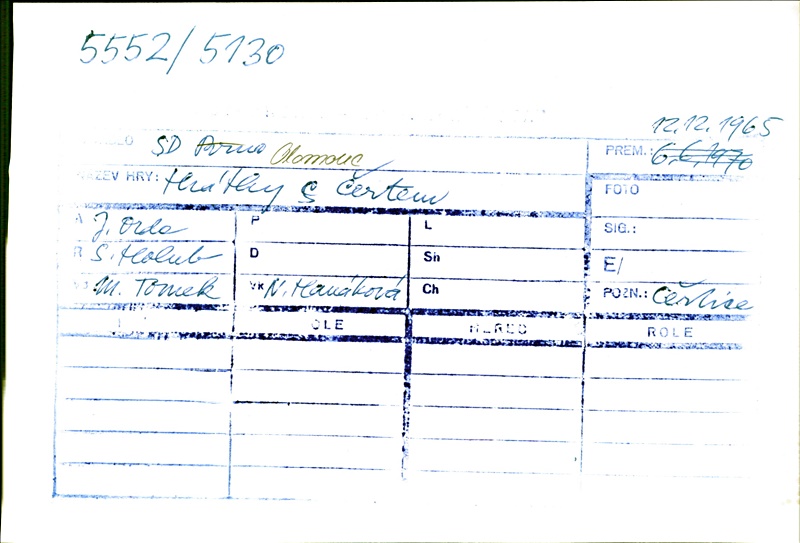 5552/5130
12.12.1965
SD Brno Olomouc
PREM.: 6.6.1970
NÁZEV HRY: Hrátky s čertem
FOTO
A J. Drda P L SIG.:
R S. Holub D Sn E/
M. Tomek VK N. Hanáková Ch POZN.: Čertice
OLE HEREC ROLE